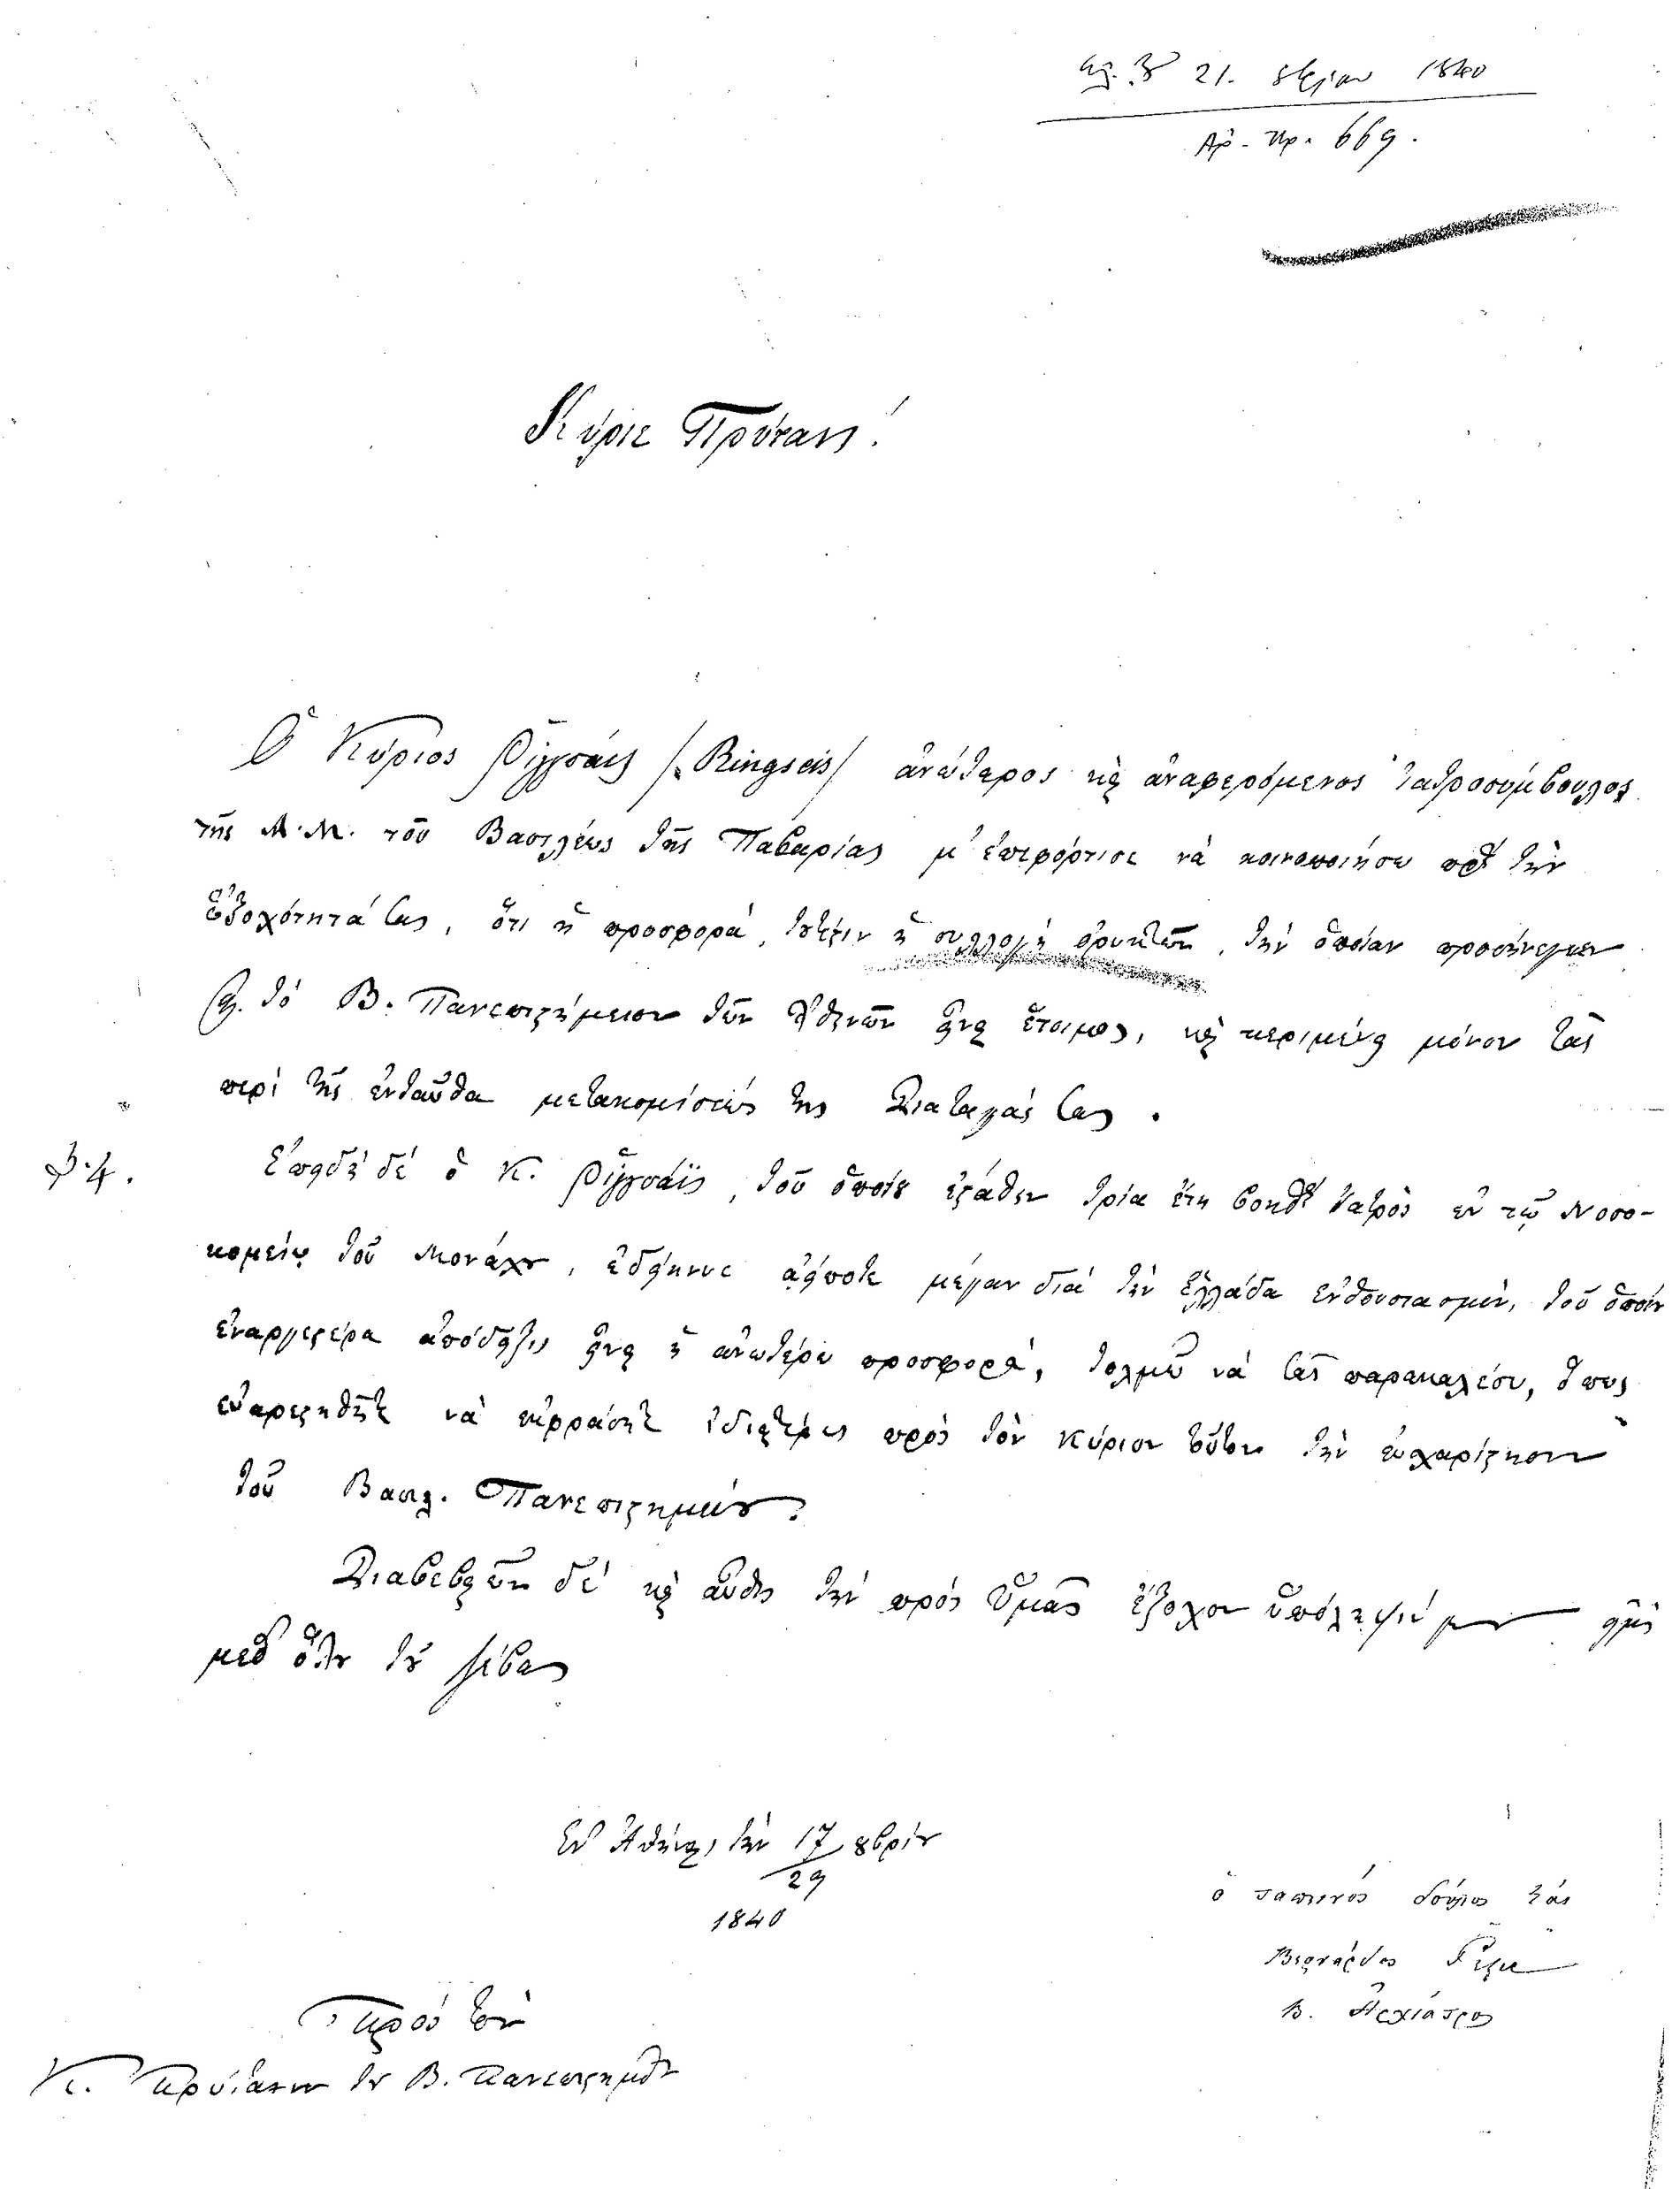 21. 8βρίου 1840
Ἀρ. πρ. 669.
Κύριε Πρύτανι!
Ὁ Κύριος Ῥιγγσάϊς /:Ringseis/ ἀνώτερος καὶ ἀναφερόμενος ἰατροσύμβουλος
τῆς Α.Μ. τοῦ Βασιλέως τῆς Παβαρίας μ' ἐπεφόρτισε νὰ κοινοποιήσω πρὸς τὴν
ἐξοχότητά σας, ὅτι ἡ προσφορά, τουτέστιν ἡ συλλογὴ ὀρυκτῶν, τὴν ὁποίαν προσήνεγκεν
εἰς τὸ Β. Πανεπιστήμειον τῶν Ἀθηνῶν εἶναι ἕτοιμος, καὶ περιμένει μόνον τὰς
περὶ τῆς ἐνταῦθα μετακομίσεώς της Διαταγάς σας.
Ἐπειδὴ δὲ ὁ Κ. Ῥιγγσάϊς, τοῦ ὁποίου ἐστάθην τρία ἔτη βοηθὸς ἰατρὸς ἐν τῷ Νοσο-
κομείῳ τοῦ Μονάχου, ἐδείκνυε ἀείποτε μέγαν διὰ τὴν Ἑλλάδα ἐνθουσιασμὸν, τοῦ ὁποίου
ἐναργεστέρα ἀπόδειξις εἶναι ἡ ἀνωτέρω προσφορά, τολμῶ νὰ σᾶς παρακαλέσω, ὅπως
εὐαρεστηθῆτε νὰ ἐκφράσητε ἰδιαιτέρως πρὸς τὸν Κύριον τοῦτον τὴν εὐχαρίστησιν
τοῦ Βασιλ. Πανεπιστημείου.
Διαβεβαιῶν δὲ καὶ αὖθις τὴν πρὸς ὑμᾶς ἔξοχον ὑπόληψίν μου εἰμὶ
μεθ' ὅλου τοῦ σέβας
Ἐν Ἀθήναις τὴν 17/29 8βρίου
1840
ὁ ταπεινός δοῦλος σας
Βερνάρδος
Β. Ἀρχίατρος
Πρὸς τὸν
Κ. Πρύτανιν τοῦ Β. Πανεπιστημείου